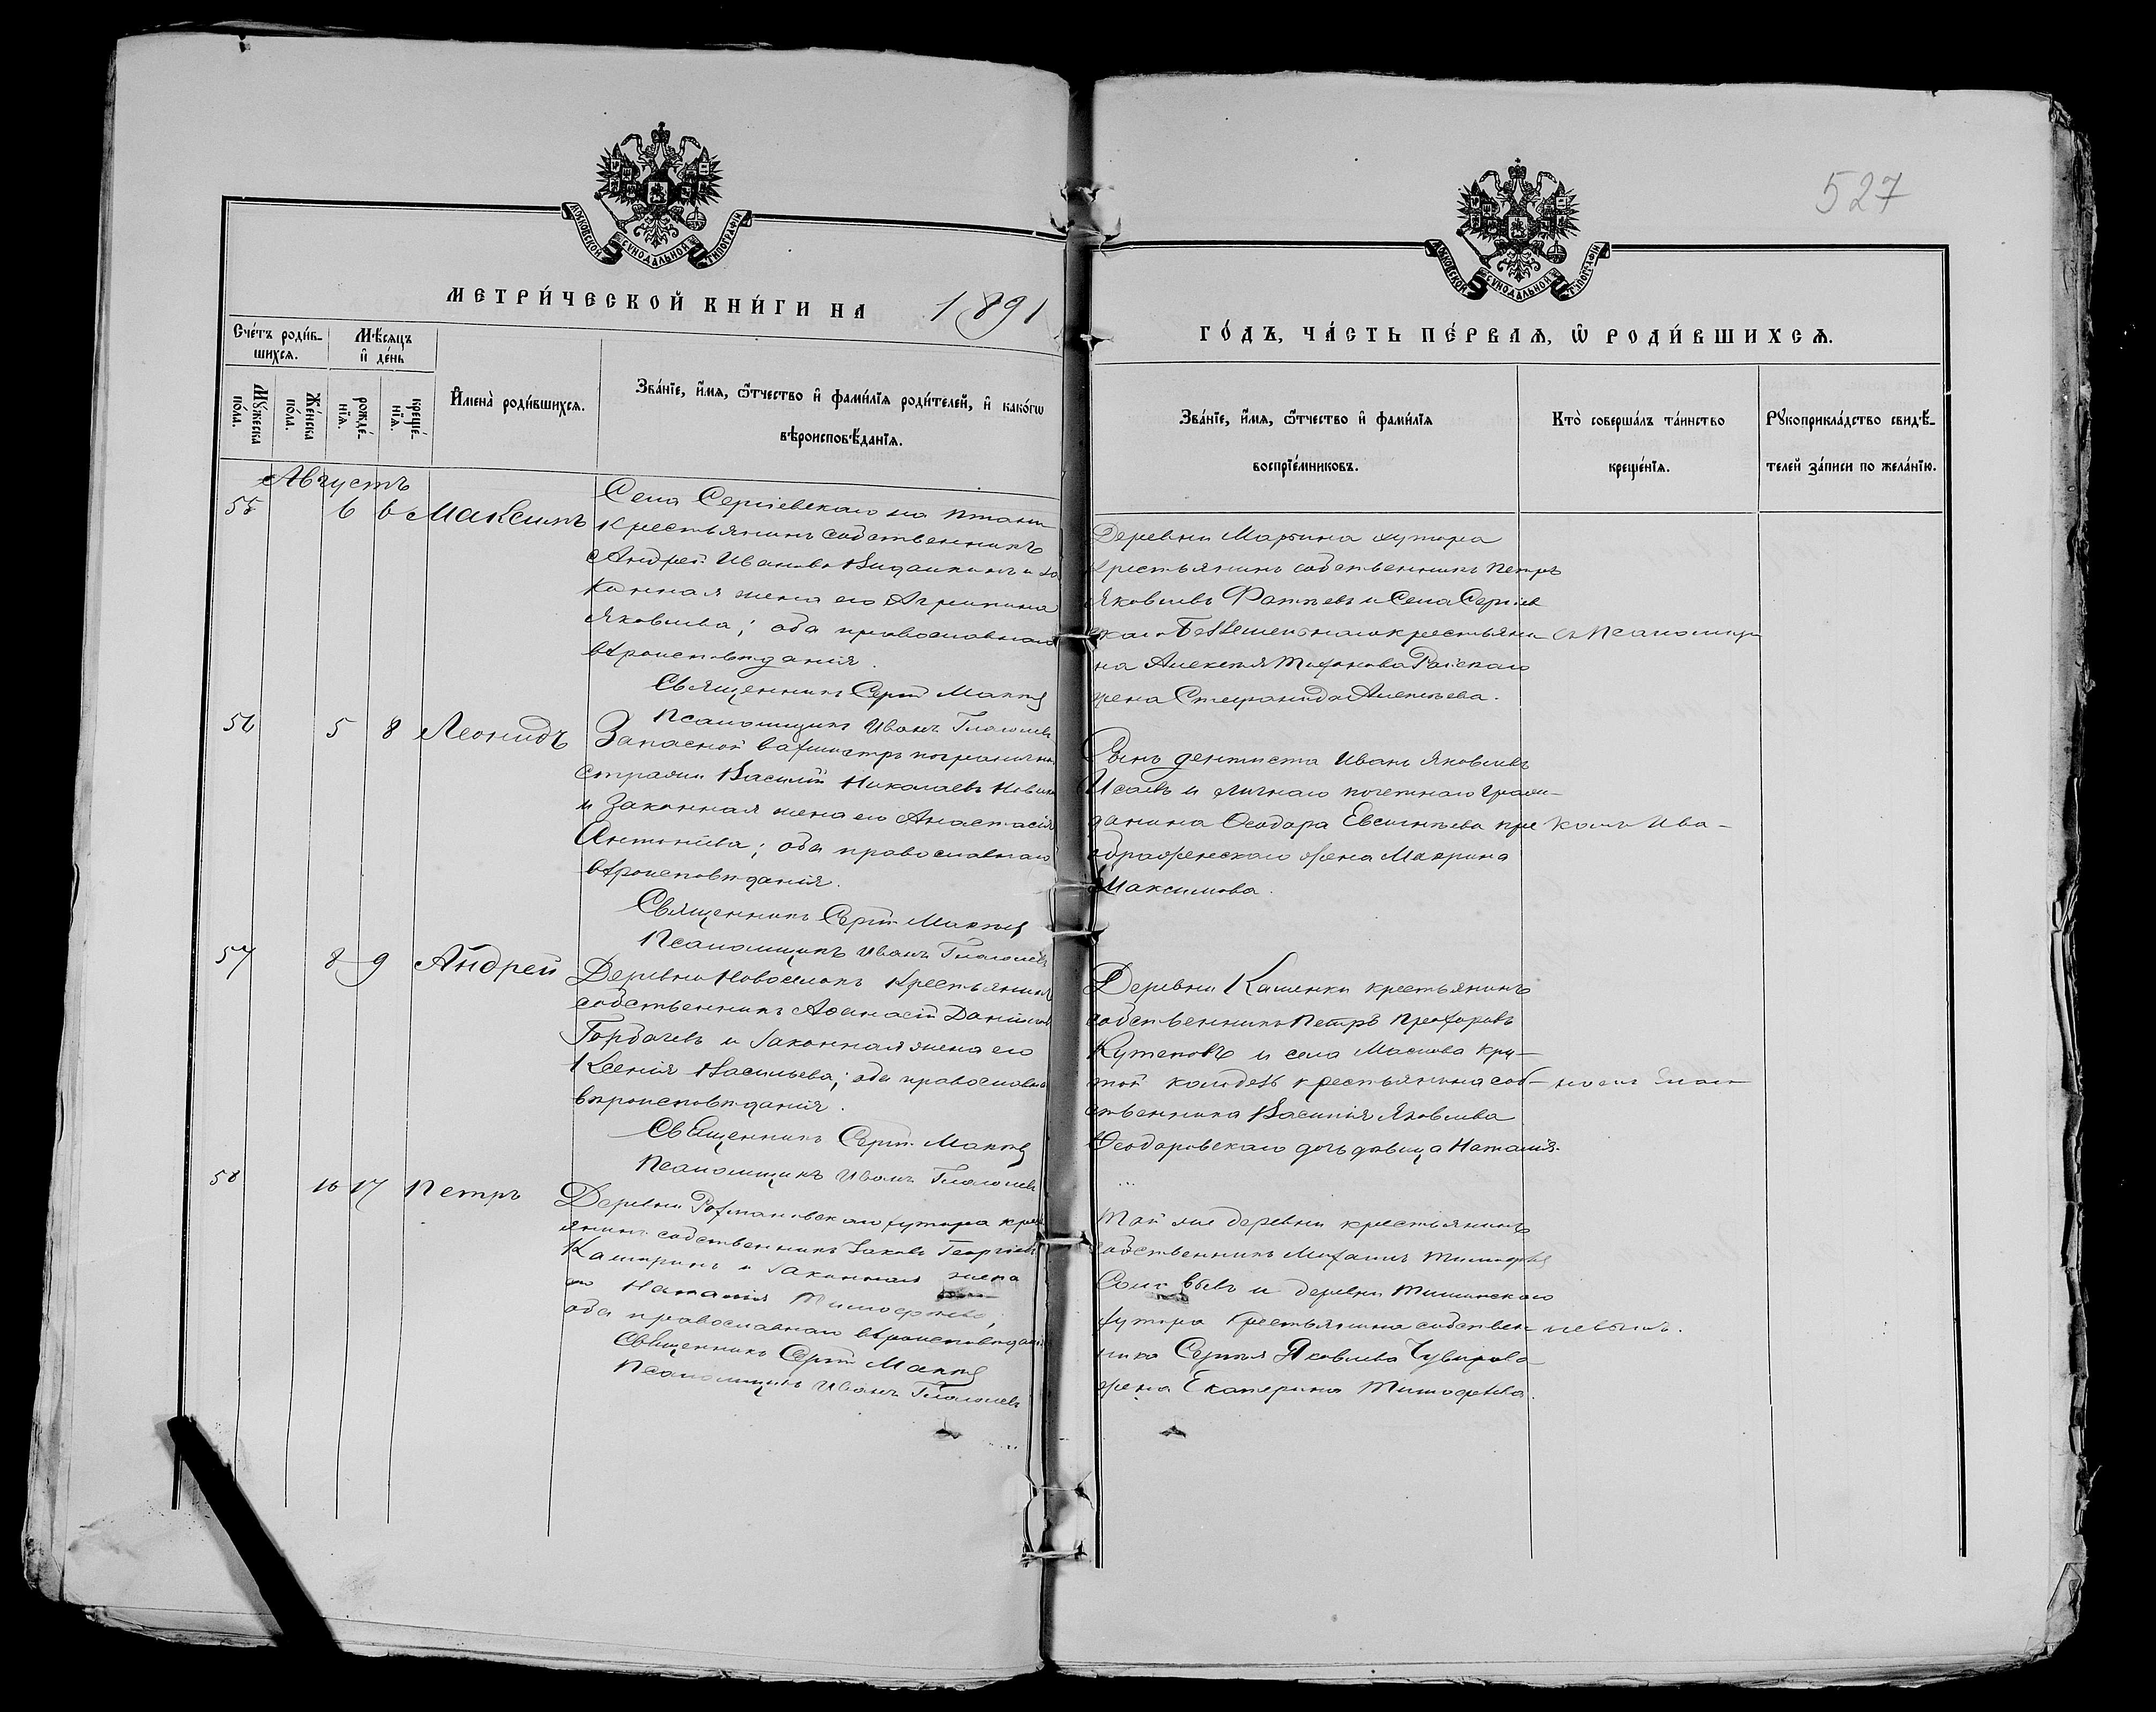 527
МОСКОВСКОЙ СѴНОДАЛЬНОЙ ТИПОГРАФІИ
МОСКОВСКОЙ СѴНОДАЛЬНОЙ ТИПОГРАФІИ
МЕТРИ́ЧЕСКОЙ КНИ́ГИ НА 1891
ГО́ДЪ, ЧА́СТЬ ПЕ́РВАѦ, Ѡ РОДИ́ВШИХСѦ.
Сче́тъ роди́в-
шихсѧ.
Мѣ́сяцъ
и҆ де́нь
Мꙋ́жеска
по́ла.
Же́нска
по́ла.
рожде́-
нїѧ.
креще́-
нїѧ.
И҆мена̀ роди́вшихсѧ.
Зва́нїе, и҆́мѧ, ѻ҆́тчество и҆ фами́лїѧ роди́телей, и҆ како́гѡ
вѣроисповѣ́данїѧ.
Зва́нїе, и҆́мѧ, ѻ҆́тчество и҆ фами́лїѧ
воспрїе́мниковъ.
Кто̀ соверша́лъ та́инство
креще́нїѧ.
Рꙋкоприкла́дство свидѣ́-
телей за́писи по жела́нїю.
Августъ
55 6 6 Максимъ
Села Сергіевскаго на Птани
крестьянинъ собственникъ
Андрей Ивановъ и за
конная жена его Агрипина
Яковлева; оба православнаго
вѣроисповѣданія.
Священникъ Сергій
Псаломщикъ Иванъ Глаголевъ
Деревни Марьина хутора
крестьянинъ собственникъ Петръ
Яковлевъ и Села Сергіев
скаго Безземельнаго крестьяни
на Алексѣя
жена Стефанида Алексѣева.
съ Псаломщи
56 5 8 Леонидъ
Запасной вахмистръ погранични
стражи Василій Николаевъ
и законная жена его Анастасія
Антоніева; оба православнаго
вѣроисповѣданія.
Священникъ Сергій
Псаломщикъ Иванъ Глаголевъ
Сынъ дентиста Иванъ Яковлевъ
Исаевъ и личнаго почетнаго граж-
данина Ѳеодора Евсигнѣева Пре
ображенскаго жена Маѳрина
Максимова.
комъ Ива-
57 8 9 Андрей
Деревни Новоселокъ крестьянинъ
собственникъ Аѳанасій Даніиловъ
Горбачевъ и законная жена его
Ксенія Васильева; оба православна
вѣроисповѣданія.
Священникъ Сергій
Псаломщикъ Иванъ Глаголевъ
Деревни Каменки крестьянинъ
собственникъ Петръ Прохоровъ
Кутеповъ и села Маслова кру-
той колодезь крестьянина соб-
ственника Василія Яковлева
Ѳеодоровскаго дочь дѣвица Наталія.
номъ Глаго
58 16 17 Петръ
Деревни хутора крес
янинъ собственникъ Іаковъ Георгіевъ
Каширинъ и законная жена
его Наталія Тимоѳеева,
оба православнаго вѣроисповѣдан
Священникъ Сергій
Псаломщикъ Иванъ Глаголевъ
Той же деревни крестьянинъ
собственникъ Михаилъ
и деревни Тишинскаго
хутора крестьянина собствен
ника Сергѣя Яковлева
жена Екатерина Тимоѳеева.
левымъ.